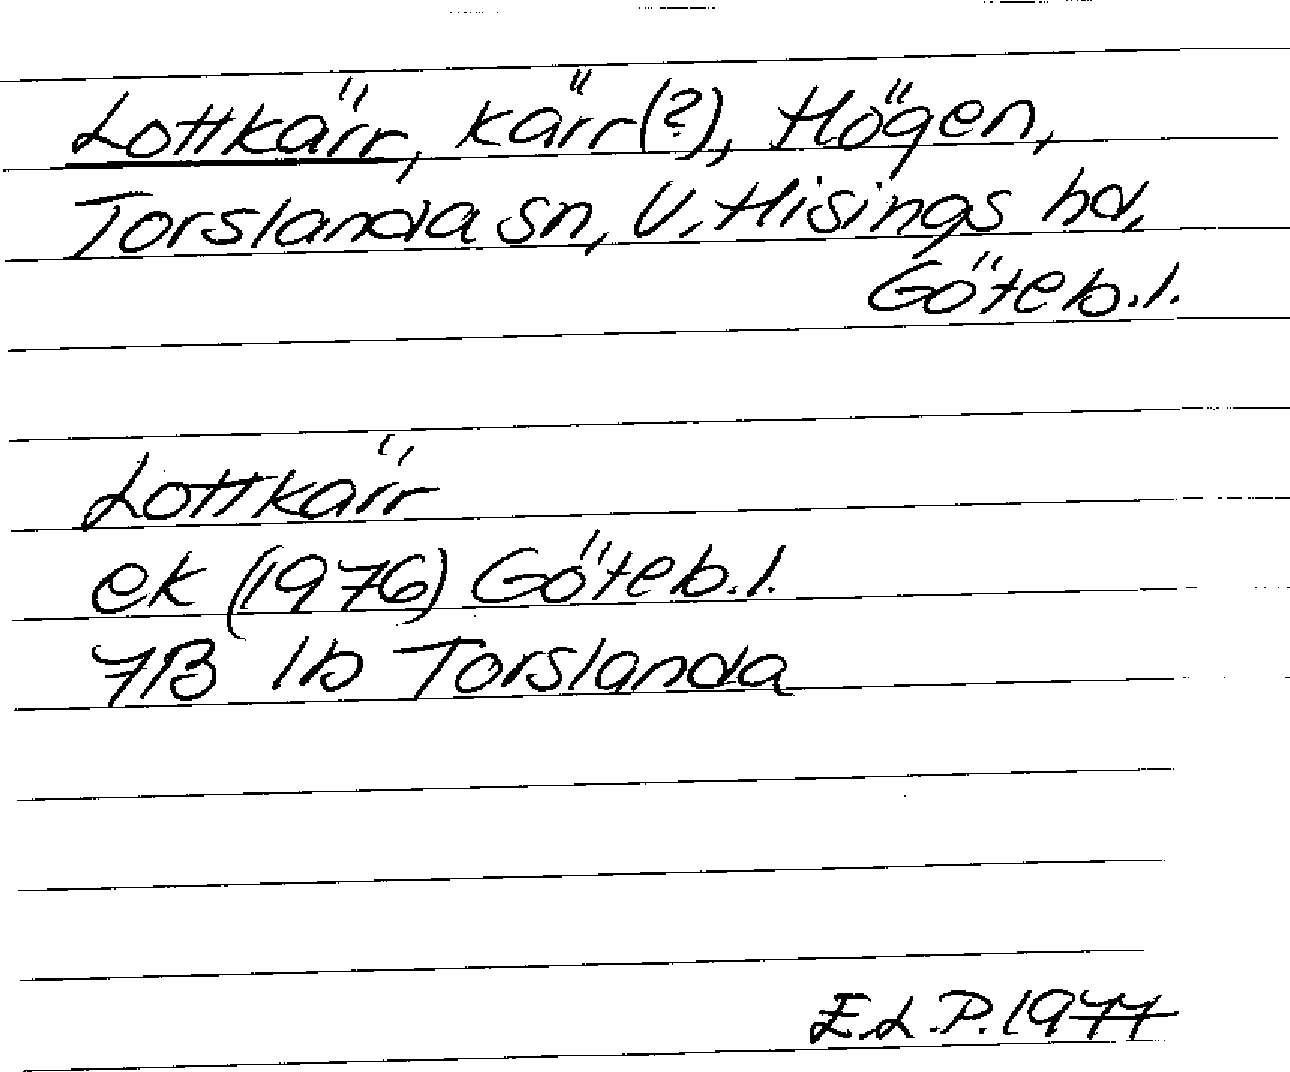 Lottkärr, kärr(?), Högen,
Torslanda sn, V. Hisings hd,
Göteb.l.
Lottkärr
ek (1976) Göteb.l.
7B 1b Torslanda
E.L.P. 1977